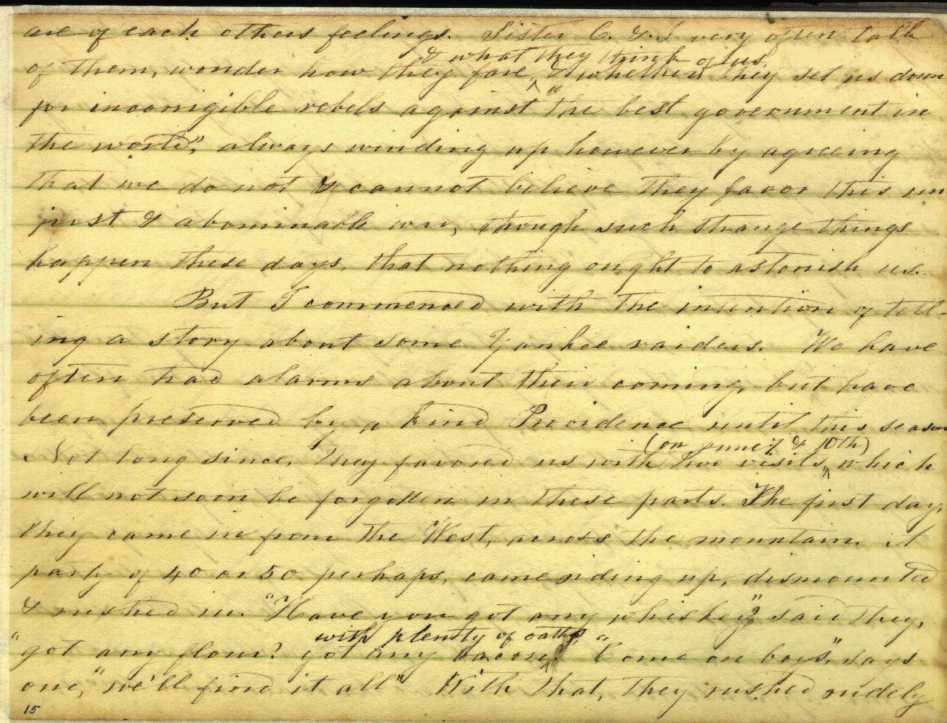 are of each others feelings. Sister C. & I very often talk
& what they think of us
of them, wonder how they fare, & whether they set us down
for incorrigible rebels against "the best government in
the world", always winding up however by agreeing
that we do not & cannot believe they favor this un
just & abominable war, though such strange things
happen these days, that nothing ought to astonish us.
But I commenced with the intention of tell-
ing a story about some Yankee raiders. We have
often had alarms about their coming, but have
been preserved by a kind Providence until this season
(on June & 10th)
Not long since, they favored us with two visits, which
will not soon be forgotten in these parts. The first day,
they came in from the West, across the mountain. A
party of 40 or 50 perhaps, came riding up, dismounted
& rushed in. "Have you got any whiskey"? said they,
with plenty of oaths
"got any flour? got any bacon?" "Come on boys", says
one, "we'll find it all" With that, they rushed rudely
15